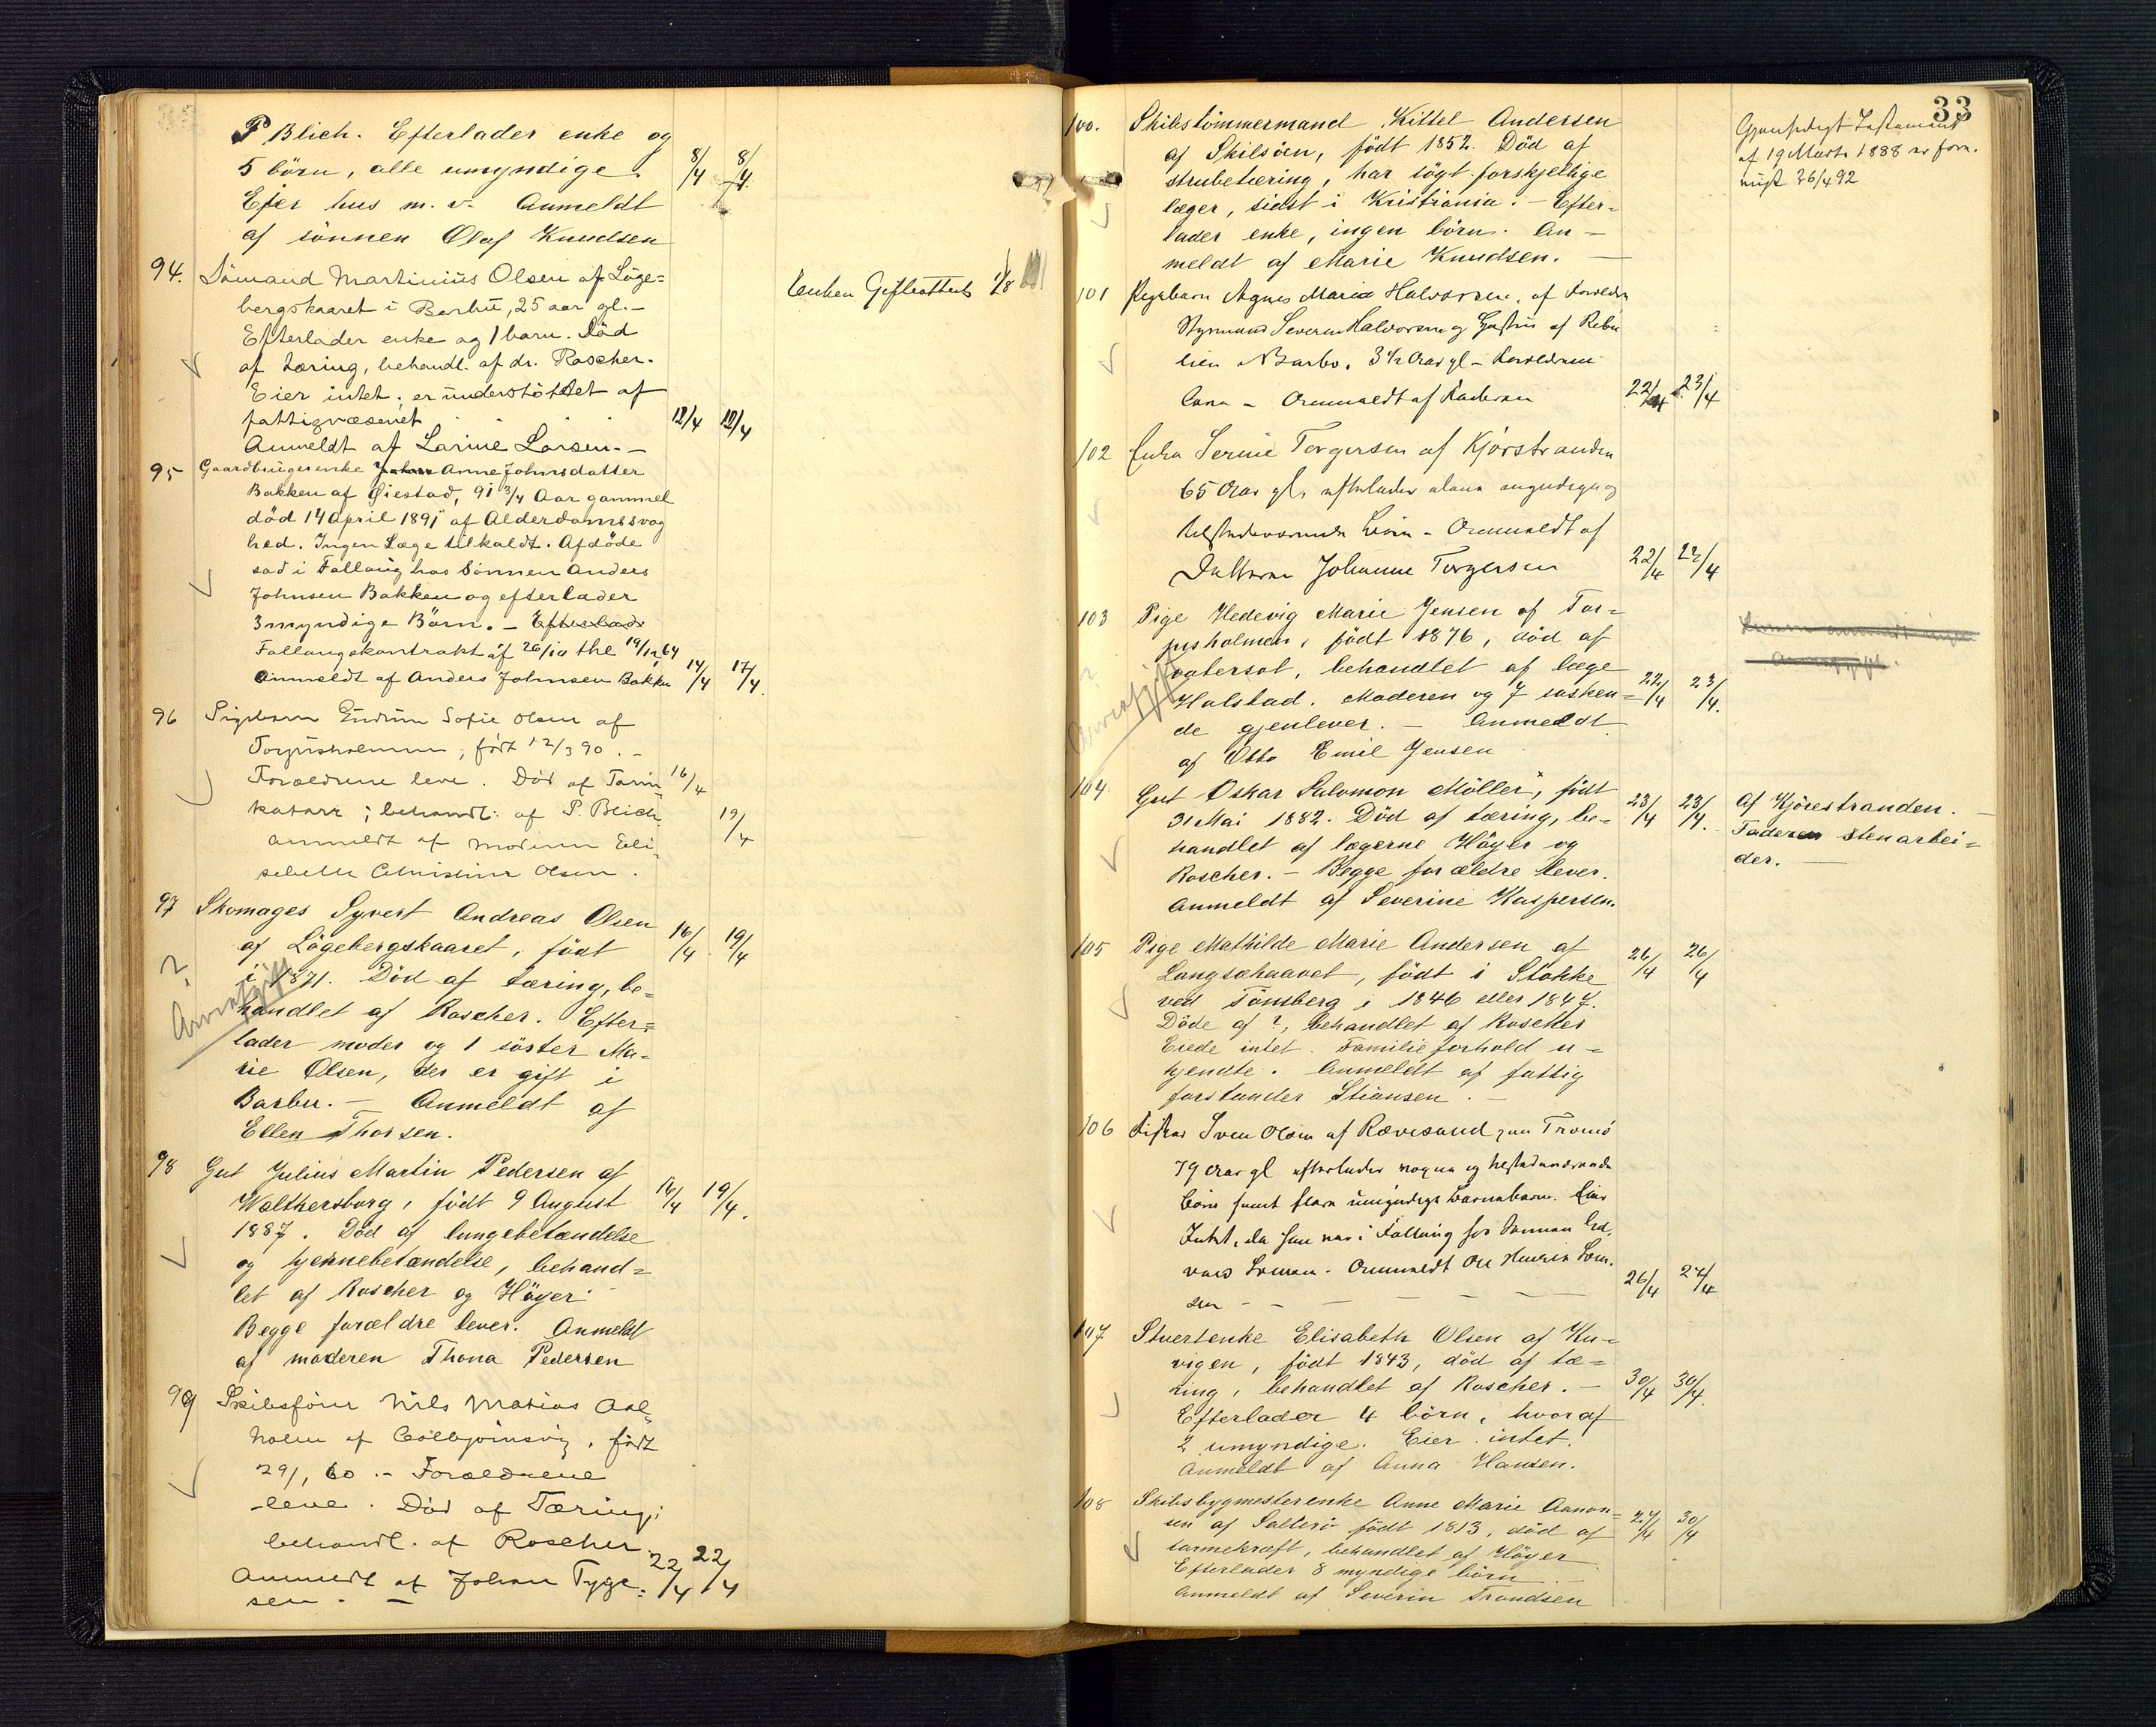 P Blich. Efterlader enke og
5 börn, alle umyndige. 8/4 8/4
Ejer hus m. v. Anmeldt
af sönnen Olaf Knudsen
94. Sömand Martinius Olsen af Löge=
bergskaaret i Barbu, 25 aar gl. -
Efterlader enke og 1 barn. Död
af tæring, behandl. af dr. Roscher.
Eier intet; er understöttet af
fattigvæsenet 12/4 12/4
Anmeldt af Larine Larsen. -
Enken
95 Gaardbrugerenke Anne Johnsdatter
Bakken af Øiestad, 91 3/4 Aar gammel
död 14 April 1891 af Alderdomssvag
hed. Ingen Læge tilkaldt. Afdöde
sad i Follaug hos Sönnen Anders
Johnsen Bakken og efterlader
3 myndige Börn. - Efterlader
Follaugskontrakt af 26/10 thl 19/12 64
Anmeldt af Anders Johnsen Bakken 17/4 17/4.
96 Pigebarn Sofie Olsen af
Torjusholmen, född 12/3 90. -
Forældrene leve. Död af Tarm 16/4
katarr; behandl: af P. Blich 19/4
anmeldt af moderen Eli=
sebeth Christine Olsen.
97 Skomager Syvert Andreas Olsen
af Lögebergskaaret, födt 16/4 19/4
i 1871. Död af tæring, be=
handlet af Roscher. Efter=
lader moder og 1 söster Ma=
rie Olsen, der er gift i
Barbu. - Anmeldt af
Ellen Thorsen.
? Arveafgift
98 Gut Julius Martin Pedersen af
Wolthersborg, födt 9 August 16/4 19/4.
1887. Död af lungebetændelse
og hjernebetændelse, behand=
let af Roscher og Höyer
Begge forældre lever. Anmeldt
af moderen Thona Pedersen
99 Skibsförer Nils Matias Aal=
holm af Colbjörnsvig, födt
29/1 60. - Forældrene
leve. Död af Tæring;
behandl. af Roscher
Anmeldt af Johan Tyge= 22/4 22/4
sen. -
33
100. Skibstömmermand Kittel Andersen
af Skilsöen, födt 1852. Död af
strubetæring, har sögt forskjellige
læger, sidst i Kristiania. - Efter=
lader enke, ingen börn. An=
meldt af Marie Knudsen.
Gjensidigt Testament
af 19 Marts 1888 er frem.
vist 26/4 92
101 Pigebarn Agnes Marie Halvorsen, af Forældre
Styrmand Severin Halvorsen og Hustru af Rebe
lien i Barbo. 3 1/2 Aar gl - Forældrene
leve - Anmeldt af Faderen 22/4 23/4
102 Enke Serine Torgersen af Kjörstranden
65 Aar gl, efterlader alene myndige og
tilstedeværende Börn - Anmeldt af
Datteren Johanne Torgersen 22/4 22/4
103 Pige Hedevig Marie Jensen af Tor=
jusholmen, födt 1876, död af
vatersot, behandlet af læge
Holstad. Moderen og 7 sösken= 22/4 23/4.
de gjenlever. - Anmeldt
af Otto Emil Jensen
Arveafgift
104 Gut Oskar Salomon Möller, födt
31 Mai 1882. Död af tæring, be= 23/4 23/4.
handlet af lægerne Höyer og
Roscher. - Begge forældre lever.
Anmeldt af Severine Kaspersen.
Af Kjörestranden. -
Faderen stenarbei=
der. -
105 Pige Mathilde Marie Andersen af
Langsæhaavet, födt i Stokke 26/4 26/4
ved Tönsberg i 1846 eller 1847.
Döde af ?, behandlet af Roscher
Eiede intet. Familieforhold u=
kjendte. Anmeldt af fattig
forstander Stiansen. -
106 Fisker Sven Olsen af Rævesand paa Tromö
79 Aar gl efterlader
Börn samt flere umyndige Barnebarn. Eier
Intet, da han var i Follaug hos Sönnen
Anmeldt 26/4 27/4
sen - - - - - -
107 Stuertenke Elisabeth Olsen af Ku=
vigen, födt 1843, död af tæ=
ring, behandlet af Roscher. - 30/4 30/4.
Efterlader 4 börn, hvoraf
2 umyndige. Eier intet.
Anmeldt af Anna Hansen.
108 Skibsbygmesterenke Anne Marie Aanon=
sen af Salterö födt 1813, död af 27/4 30/4
tarmekræft, behandlet af Höyer
Efterlader 8 myndige börn. -
Anmeldt af Severin Trondsen